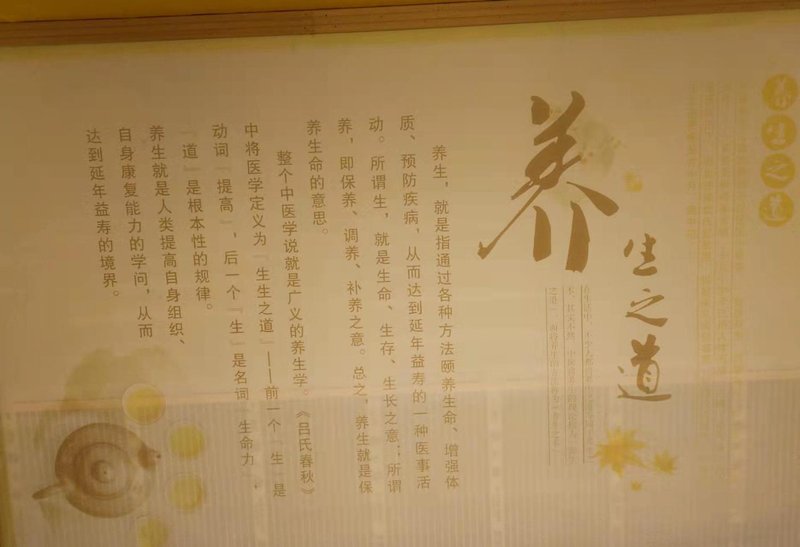 养生之道
养生之道
养生，就是指通过各种方法颐养生命、增强体
质、预防疾病，从而达到延年益寿的一种医事活
动。所谓生，就是生命、生存、生长之意；所谓
养，即保养、调养、补养之意。总之，养生就是保
养生命的意思。
整个中医学说就是广义的养生学。《吕氏春秋》
中将医学定义为『生生之道』——前一个『生』是
动词『提高』，后一个『生』是名词『生命力』；
『道』是根本性的规律。
养生就是人类提高自身组织、
自身康复能力的学问，从而
达到延年益寿的境界。